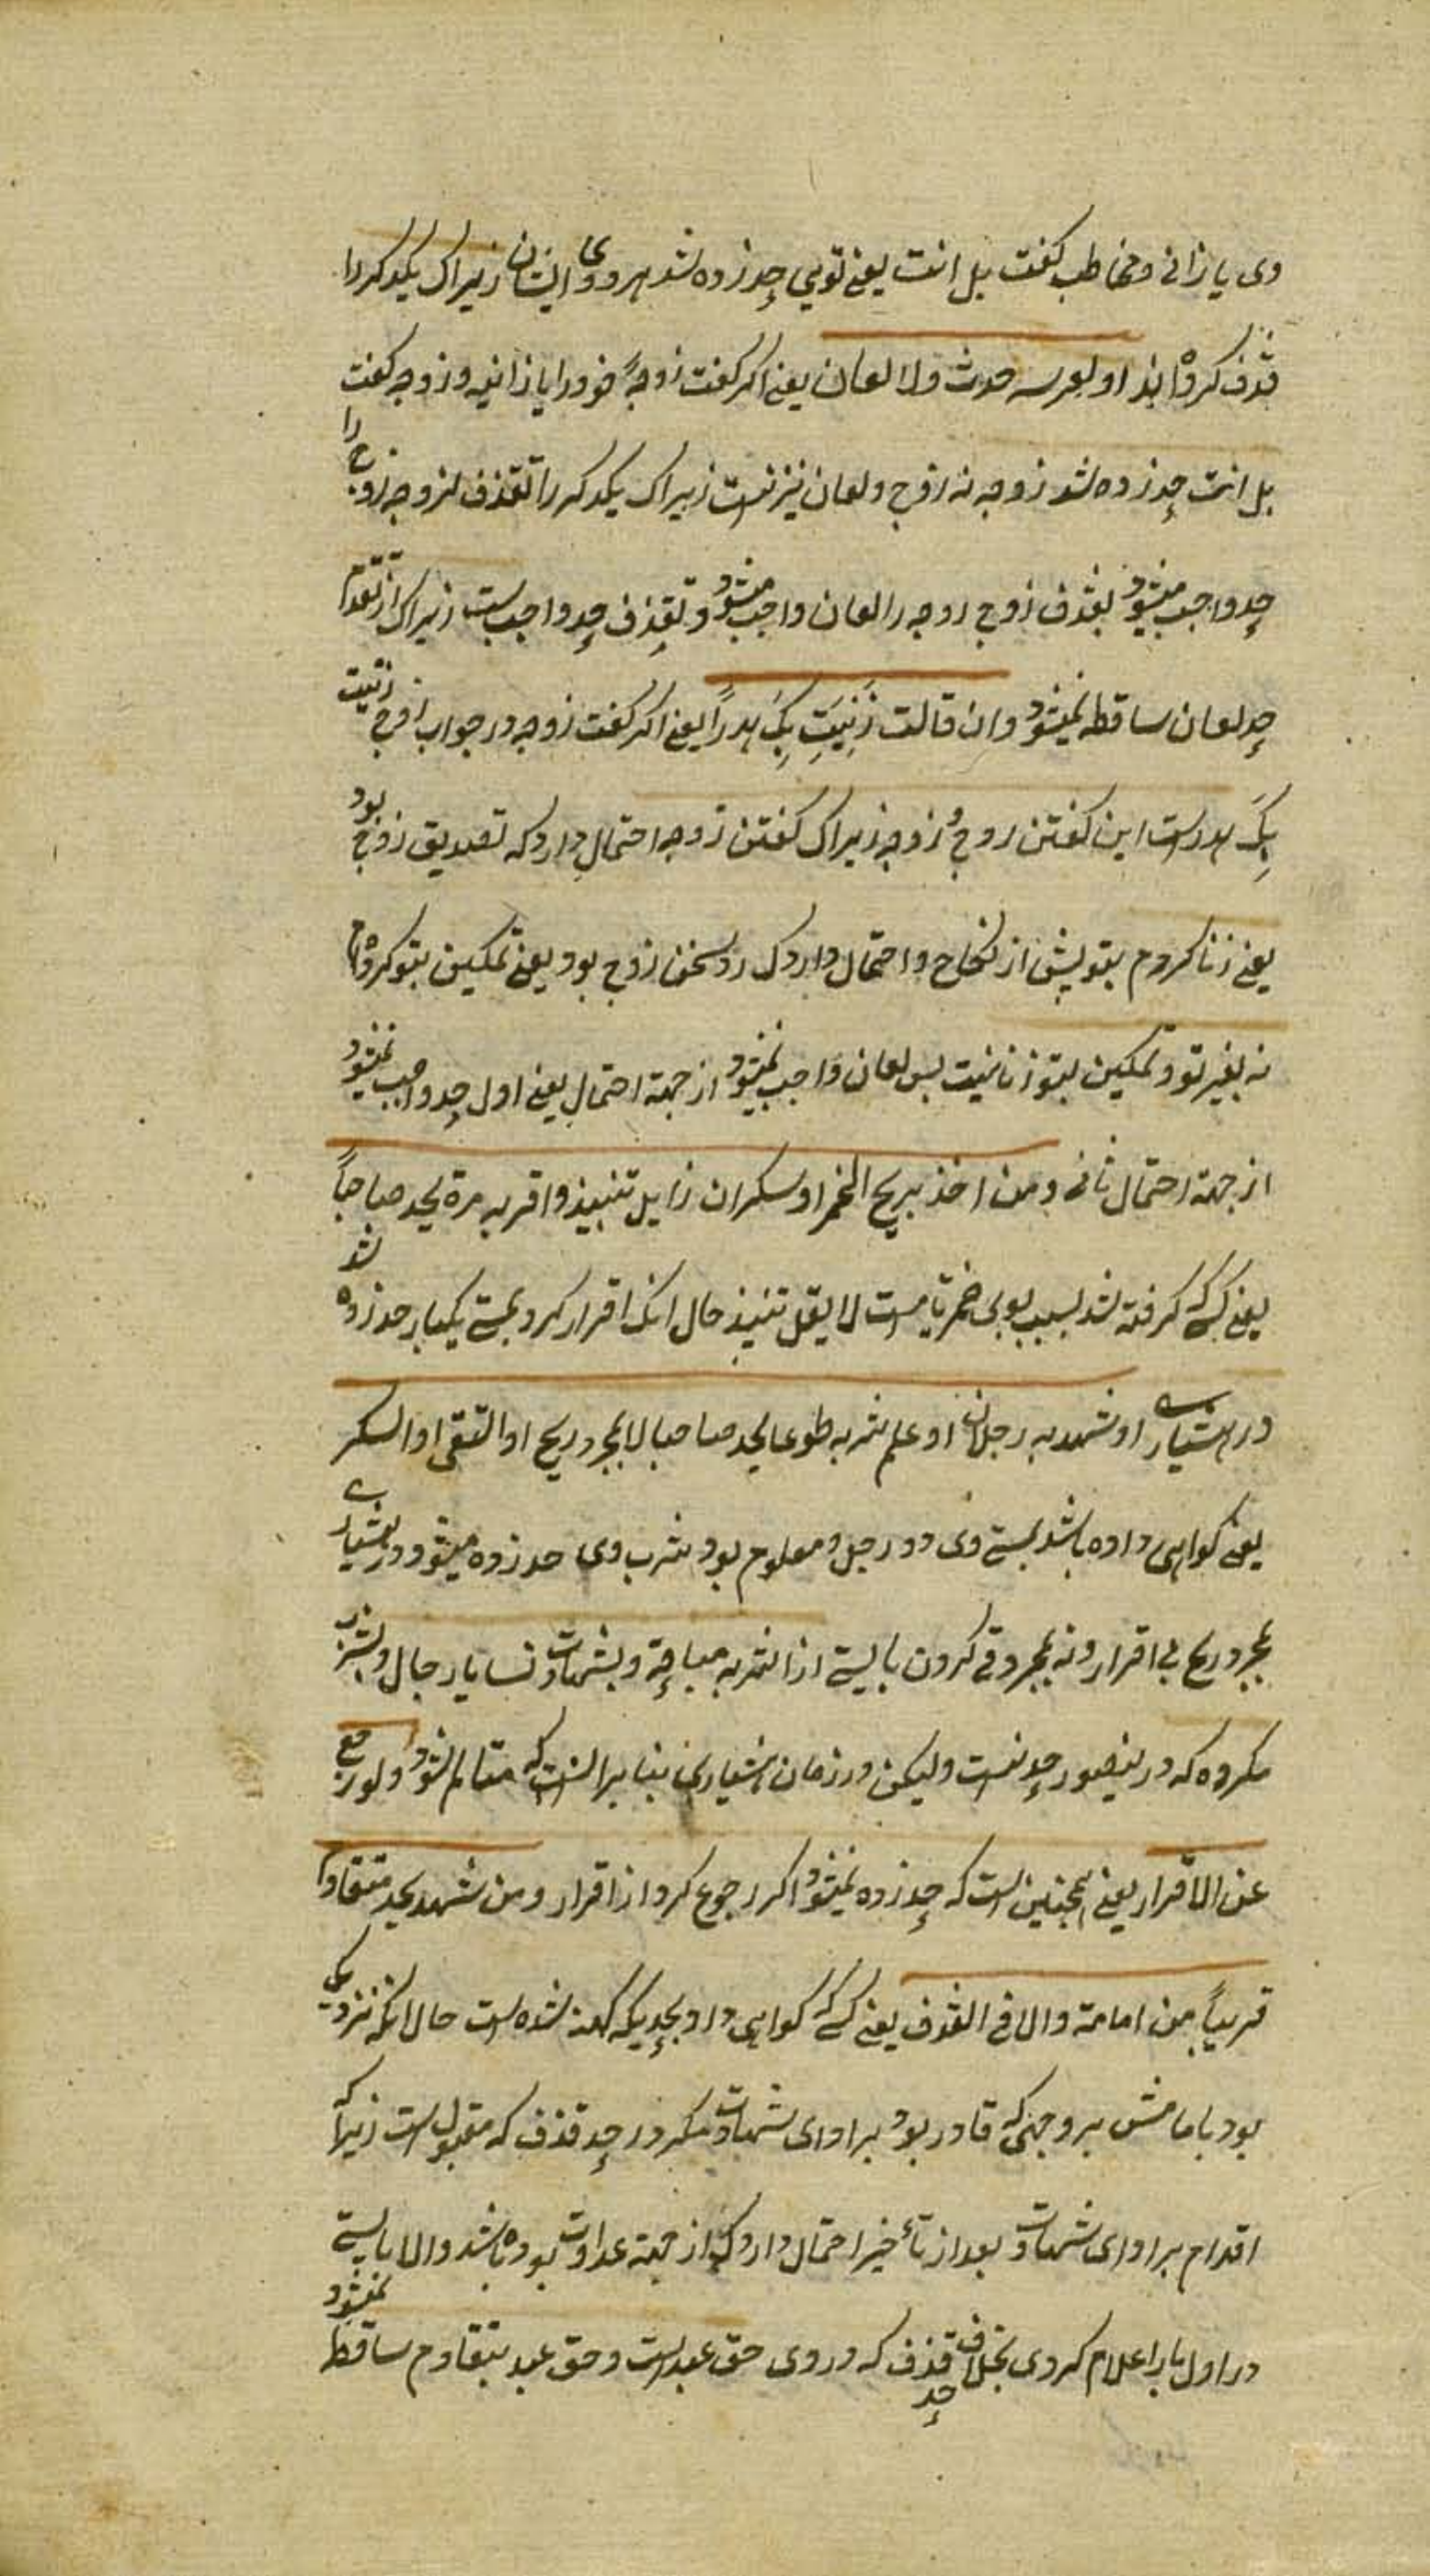 وی یا زانی و مخاطب کفت بل انت یعنی تویی حد زده شد هر دوی ایشان زیراک یکدکر را
قذف کرده اند او لعرسه حدت ولا لعان یعنی اکر کفت زوجهٔ خود را یا زانیه و زوجه کفت
بل انت حد زده شد زوجه نه زوج و لعان نیز نیست زیراک یکدکر را قذف زوجه زوج را
حد واجب میشود بقذف زوج زوجه را لعان واجب میشود و تقذف حد واجبست زیراک از تقدم
حد لعان ساقطه نمیشود وان قالت زَنَیتُ بِکَ هدراً یعنی اکر کفت زوجه در جواب زوج زنیت
بِکَ هدرست این کفتن زوج و زوجه زیراک کفتن زوجه احتمال دارد که تصدیق زوج بود
یعنی زنا کردم بتو پیش از نکاح و احتمال دارد ک رد سخن زوج بود یعنی تمکین بتو کرده ام
نه بغیر تو و تمکین بتو زنا نیست پس لعان واجب نمیشود از جهة احتمال یعنی اول حد واجب نمیشود
از جهة احتمال ثانی ومن اخذ بریح الخمر او سکران زایل تنبیذ واقر به مرة یحد صاحیاً
یعنی کسی که کرفته شد بسبب بوی خمر یا مست لا یعقل تنبیذ حال انک اقرار کرد بمستی یکبار حد زده شد
در هشیاری او شهد به رجلان او علم شربه طوعا یحد صاحیا لا بمجرد ریح او التقی او السکر
یعنی کواهی داده باشد بمستی وی دو رجل و معلوم بود شرب وی حد زده میشود در هشیاری
بمجرد ریح بی اقرار و نه بمجرد قی کردن یا بستی از اشربه مباحة و بشهادت نسا با رجال و بشرب
مکروه که در ینصور حد نیست ولیکن در زمان هشیاری بنا برانست که متالم شود ولو رجع
عن الاقرار یعنی همچنین است که حد زده نمیشود اکر رجوع کرد از اقرار ومن شهد بحد متقادم
قریباً من امامه والا فی القذف یعنی کسی که کواهی داد بحدیکه کهنه شده است حال انکه نزدیک
بود با مامش بر وجهی که قادر بود بر ادای شهادت مکر در حد قذف که مقبولست زیرا که
اقدام بر ادای شهادت بعد از تأخیر احتمال دارد که از جهة عداوت بوده باشد والا بایستی
در اول بار اعلام کردی بخلاف حد قذف که در وی حق عبدست و حق عبد بتقادم ساقط نمیشود